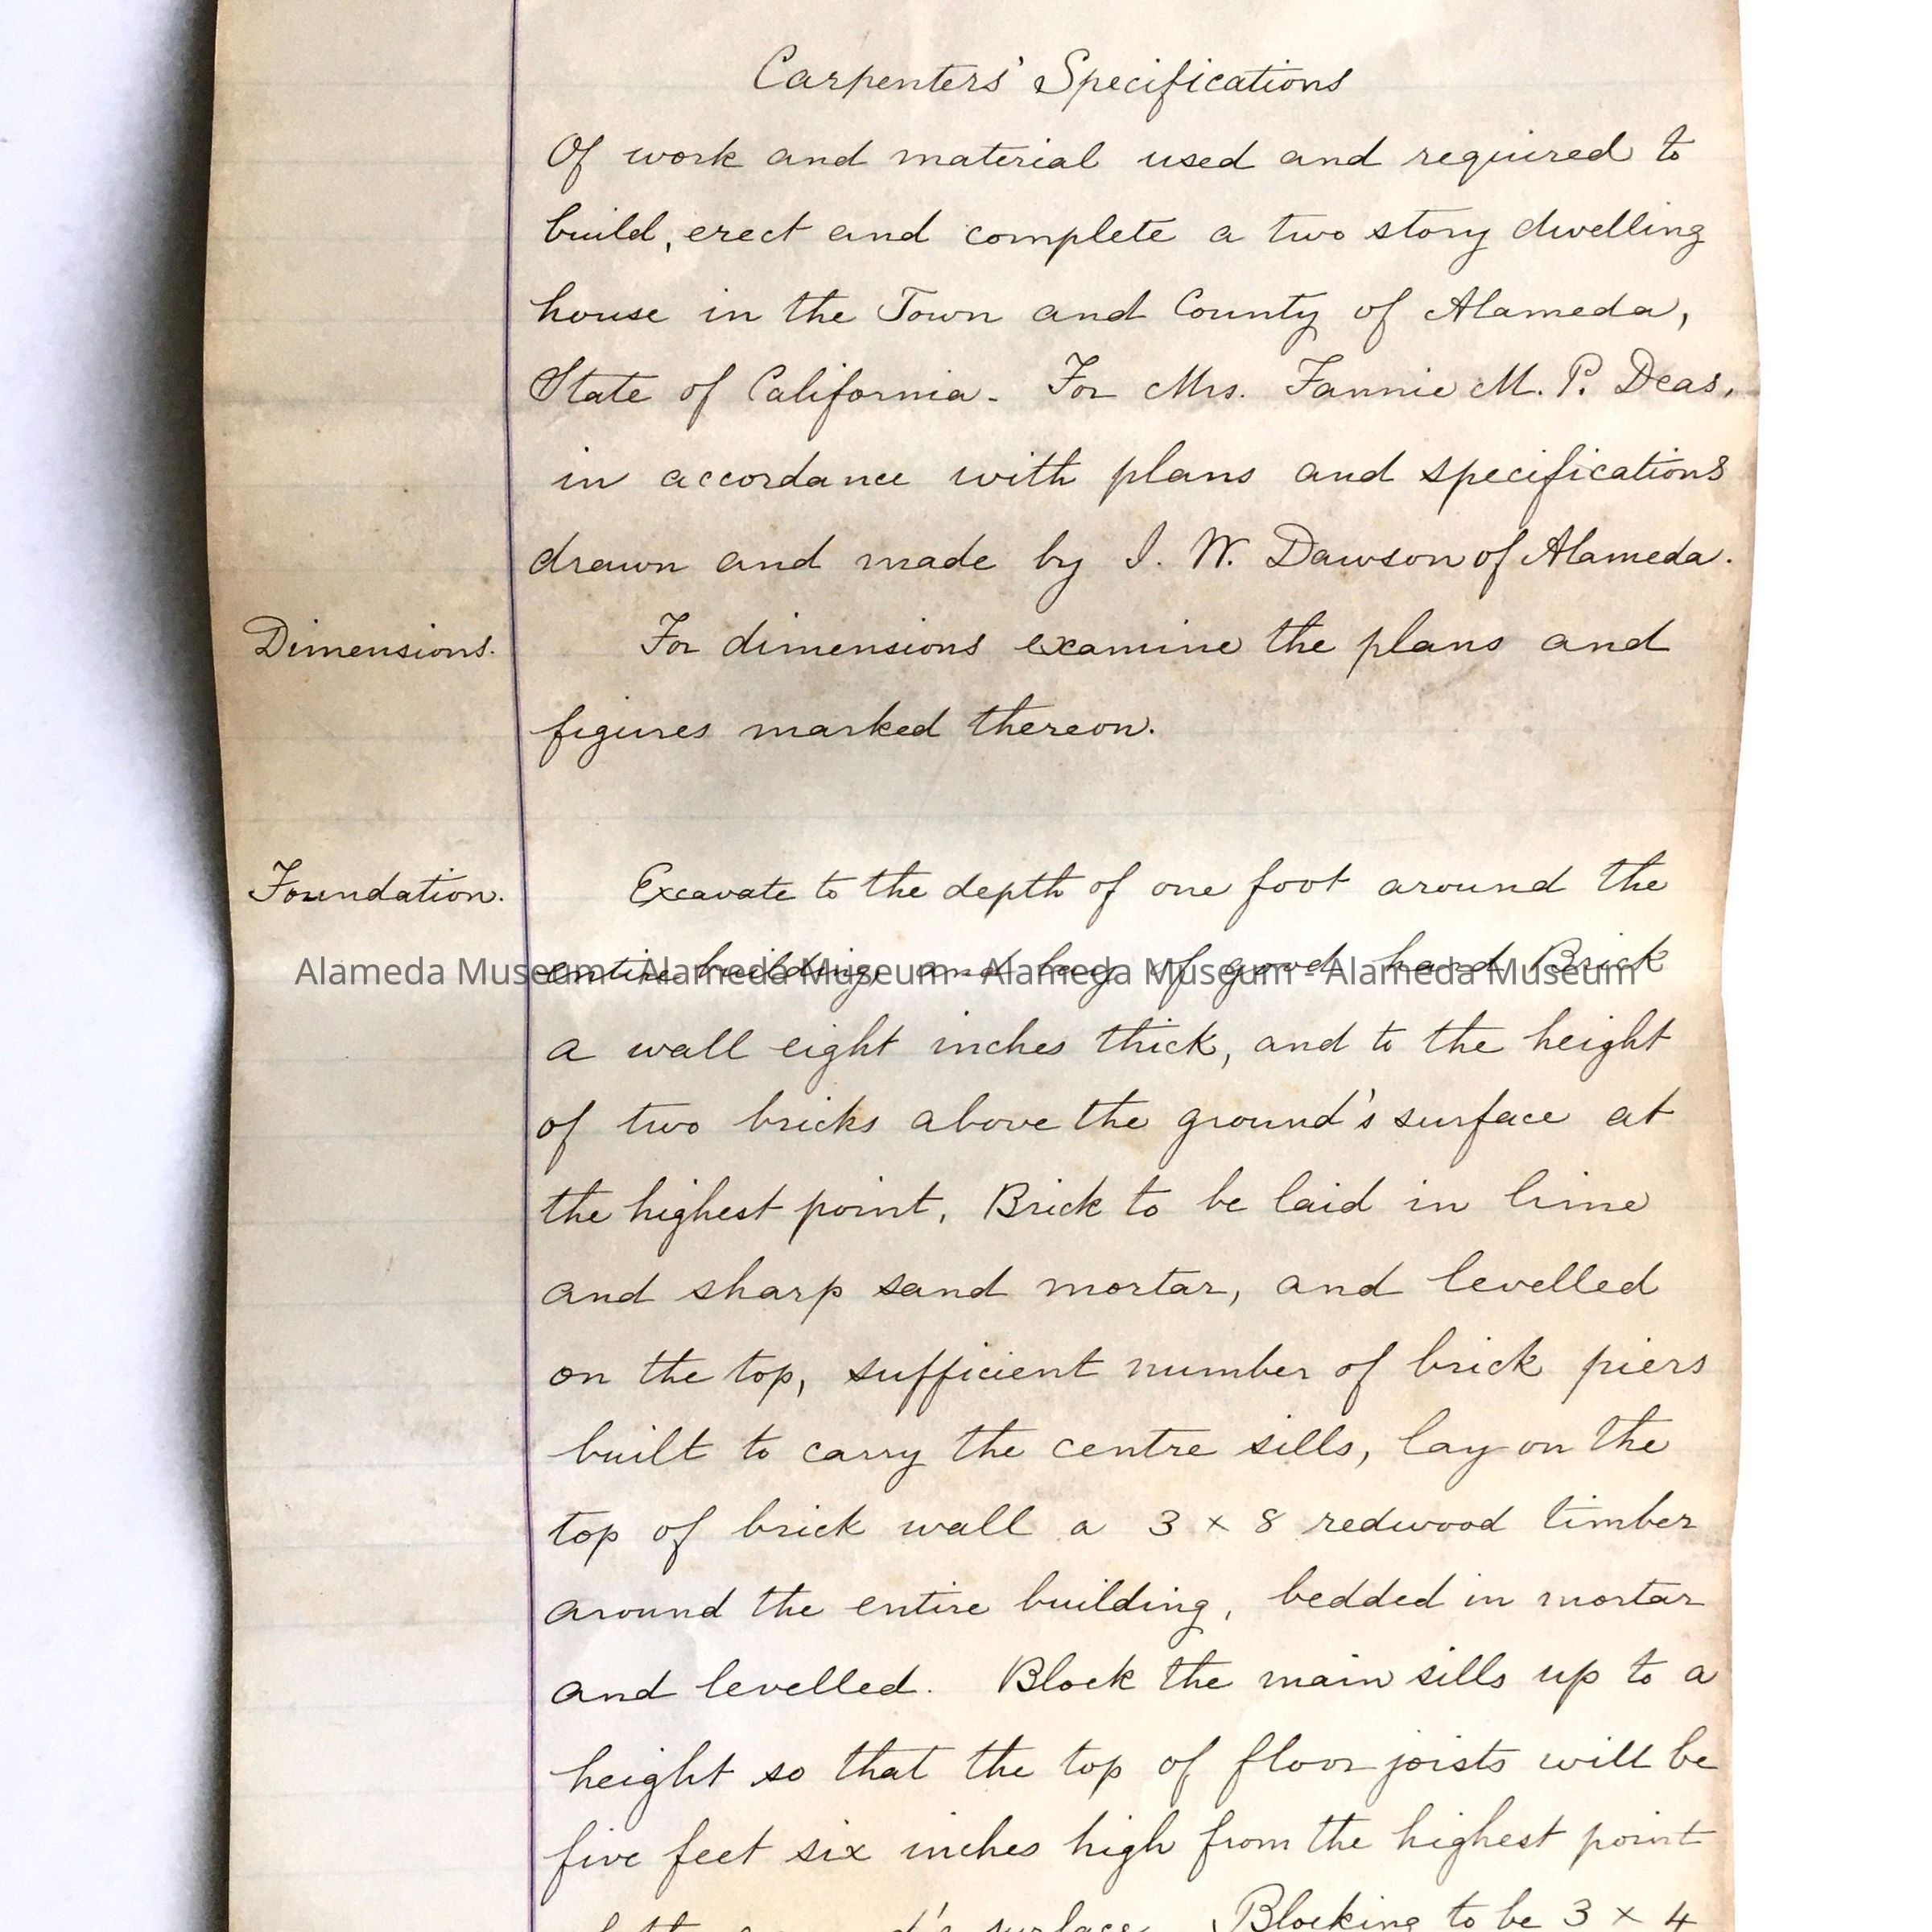 Carpenters' Specifications
Of work and material used and required to
build, erect and complete a two story dwelling
house in the Town and County of Alameda,
State of California. For Mrs. Fannie M. P. Deas,
in accordance with plans and specifications
drawn and made by I. W. Dawson of Alameda.
Dimensions. For dimensions examine the plans and
figures marked thereon.
Foundation. Excavate to the depth of one foot around the
entire building, and lay of good hard Brick
Alameda Museum - Alameda Museum - Alameda Museum - Alameda Museum
a wall eight inches thick, and to the height
of two bricks above the ground's surface at
the highest point. Brick to be laid in lime
and sharp sand mortar, and levelled
on the top, sufficient number of brick piers
built to carry the centre sills, lay on the
top of brick wall a 3 x 8 redwood timber
around the entire building, bedded in mortar
and levelled. Block the main sills up to a
height so that the top of floor joists will be
five feet six inches high from the highest point
surface. Blocking to be 3 x 4